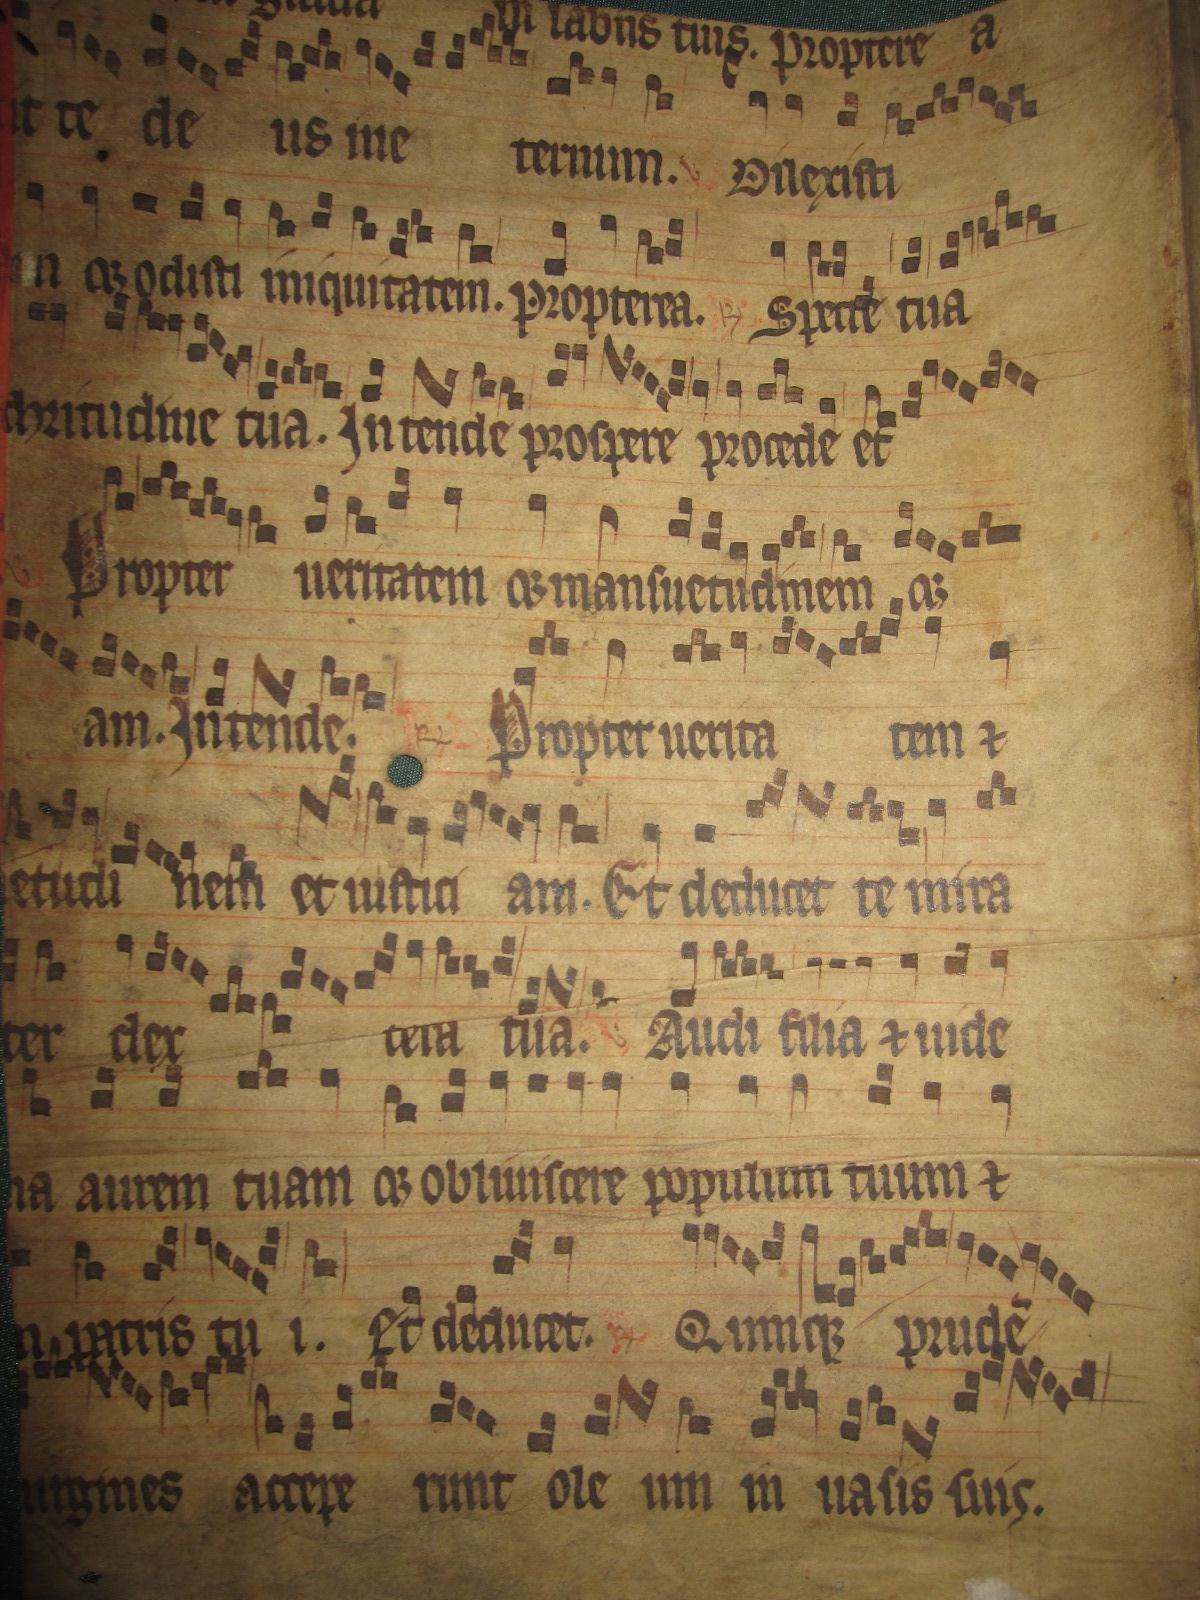 gratia in labiis tuis. Proptere a
it te de us in e ternum. Dilexisti
m & odisti iniquitatem. Propterea. R Specie tua
chritudine tua. Intende prospere procede et
Propter ueritatem & mansuetudinem &
am. Intende. R Propter uerita tem ⁊
etudi nem et iustici am. Et deducet te mira
ter dex tera tua. Audi filia ⁊ uide
na aurem tuam & obliuiscere populum tuum ⁊
m patris tu i. Et deducet. R Quinqꝫ prudē
uirgines accepe runt ole um in uasis suis.